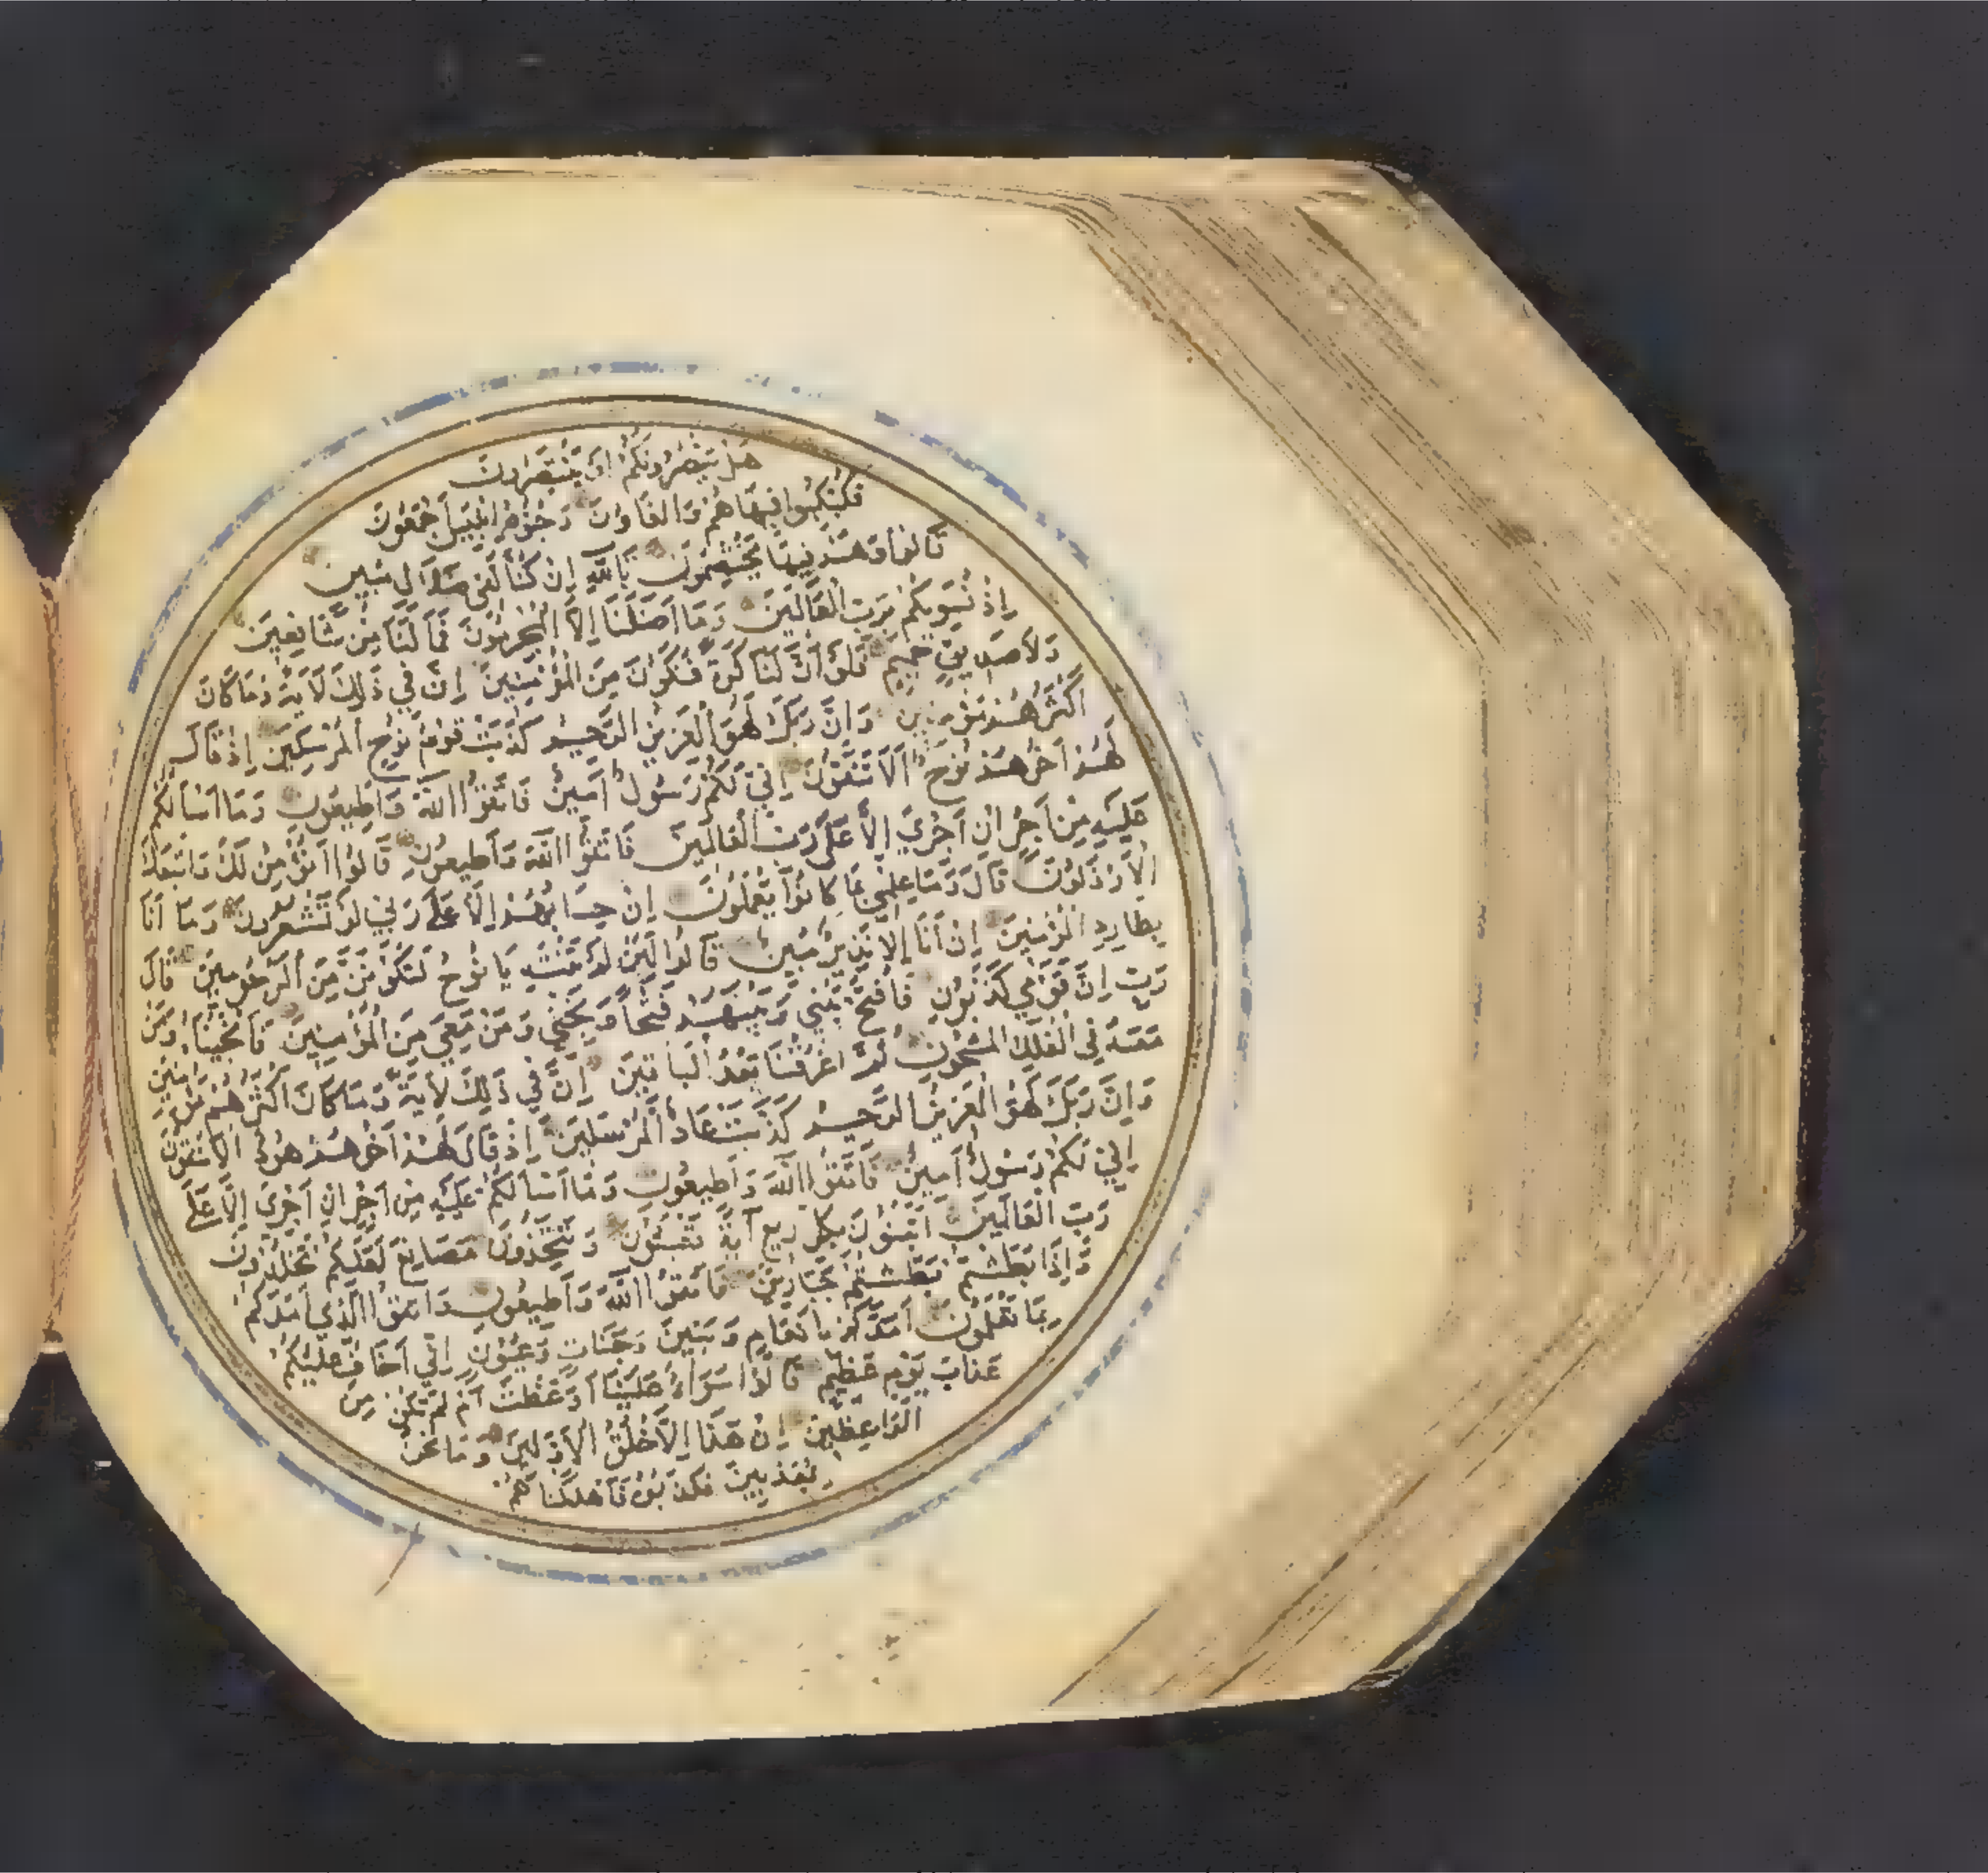 هَلْ يَنْصُرُونَكُمْ اَوْ يَنْتَصِرُونَ
فَكُبْكِبُوا فِيهَا هُمْ وَالْغَاوُنَ وَجُنُودُ اِبْلِيسَ اَجْمَعُونَ
قَالُوا وَهُمْ فِيهَا يَخْتَصِمُونَ تَاللّٰهِ اِنْ كُنَّا لَفِي ضَلَالٍ مُبِينٍ
اِذْ نُسَوِّيكُمْ بِرَبِّ الْعَالَمِينَ وَمَا اَضَلَّنَا اِلَّا الْمُجْرِمُونَ فَمَا لَنَا مِنْ شَافِعِينَ
وَلَا صَدِيقٍ حَمِيمٍ فَلَوْ اَنَّ لَنَا كَرَّةً فَنَكُونَ مِنَ الْمُؤْمِنِينَ اِنَّ فِي ذٰلِكَ لَاٰيَةً وَمَا كَانَ
اَكْثَرُهُمْ مُؤْمِنِينَ وَاِنَّ رَبَّكَ لَهُوَ الْعَزِيزُ الرَّحِيمُ كَذَّبَتْ قَوْمُ نُوحٍ الْمُرْسَلِينَ اِذْ قَالَ
لَهُمْ اَخُوهُمْ نُوحٌ اَلَا تَتَّقُونَ اِنِّي لَكُمْ رَسُولٌ اَمِينٌ فَاتَّقُوا اللّٰهَ وَاَطِيعُونِ وَمَا اَسْاَلُكُمْ
عَلَيْهِ مِنْ اَجْرٍ اِنْ اَجْرِيَ اِلَّا عَلٰى رَبِّ الْعَالَمِينَ فَاتَّقُوا اللّٰهَ وَاَطِيعُونِ قَالُوا اَنُؤْمِنُ لَكَ وَاتَّبَعَكَ
الْاَرْذَلُونَ قَالَ وَمَا عِلْمِي بِمَا كَانُوا يَعْمَلُونَ اِنْ حِسَابُهُمْ اِلَّا عَلٰى رَبِّي لَوْ تَشْعُرُونَ وَمَا اَنَا
بِطَارِدِ الْمُؤْمِنِينَ اِنْ اَنَا اِلَّا نَذِيرٌ مُبِينٌ قَالُوا لَئِنْ لَمْ تَنْتَهِ يَا نُوحُ لَتَكُونَنَّ مِنَ الْمَرْجُومِينَ قَالَ
رَبِّ اِنَّ قَوْمِي كَذَّبُونِ فَافْتَحْ بَيْنِي وَبَيْنَهُمْ فَتْحًا وَنَجِّنِي وَمَنْ مَعِيَ مِنَ الْمُؤْمِنِينَ فَاَنْجَيْنَاهُ وَمَنْ
مَعَهُ فِي الْفُلْكِ الْمَشْحُونِ ثُمَّ اَغْرَقْنَا بَعْدُ الْبَاقِينَ اِنَّ فِي ذٰلِكَ لَاٰيَةً وَمَا كَانَ اَكْثَرُهُمْ مُؤْمِنِينَ
وَاِنَّ رَبَّكَ لَهُوَ الْعَزِيزُ الرَّحِيمُ كَذَّبَتْ عَادٌ الْمُرْسَلِينَ اِذْ قَالَ لَهُمْ اَخُوهُمْ هُودٌ اَلَا تَتَّقُونَ
اِنِّي لَكُمْ رَسُولٌ اَمِينٌ فَاتَّقُوا اللّٰهَ وَاَطِيعُونِ وَمَا اَسْاَلُكُمْ عَلَيْهِ مِنْ اَجْرٍ اِنْ اَجْرِيَ اِلَّا عَلٰى
رَبِّ الْعَالَمِينَ اَتَبْنُونَ بِكُلِّ رِيعٍ اٰيَةً تَعْبَثُونَ وَتَتَّخِذُونَ مَصَانِعَ لَعَلَّكُمْ تَخْلُدُونَ
وَاِذَا بَطَشْتُمْ بَطَشْتُمْ جَبَّارِينَ فَاتَّقُوا اللّٰهَ وَاَطِيعُونِ وَاتَّقُوا الَّذِي اَمَدَّكُمْ
بِمَا تَعْلَمُونَ اَمَدَّكُمْ بِاَنْعَامٍ وَبَنِينَ وَجَنَّاتٍ وَعُيُونٍ اِنِّي اَخَافُ عَلَيْكُمْ
عَذَابَ يَوْمٍ عَظِيمٍ قَالُوا سَوَاءٌ عَلَيْنَا اَوَعَظْتَ اَمْ لَمْ تَكُنْ مِنَ
الْوَاعِظِينَ اِنْ هٰذَا اِلَّا خُلُقُ الْاَوَّلِينَ وَمَا نَحْنُ
بِمُعَذَّبِينَ فَكَذَّبُوهُ فَاَهْلَكْنَاهُمْ